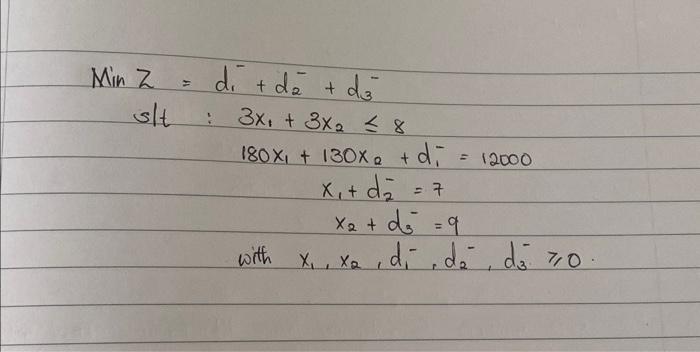 Min Z = d₁⁻ + d₂⁻ + d₃⁻
s/t : 3x₁ + 3x₂ ≤ 8
180x₁ + 130x₂ + d₁⁻ = 12000
x₁ + d₂⁻ = 7
x₂ + d₃⁻ = 9
with x₁, x₂, d₁⁻, d₂⁻, d₃⁻ ≥ 0.